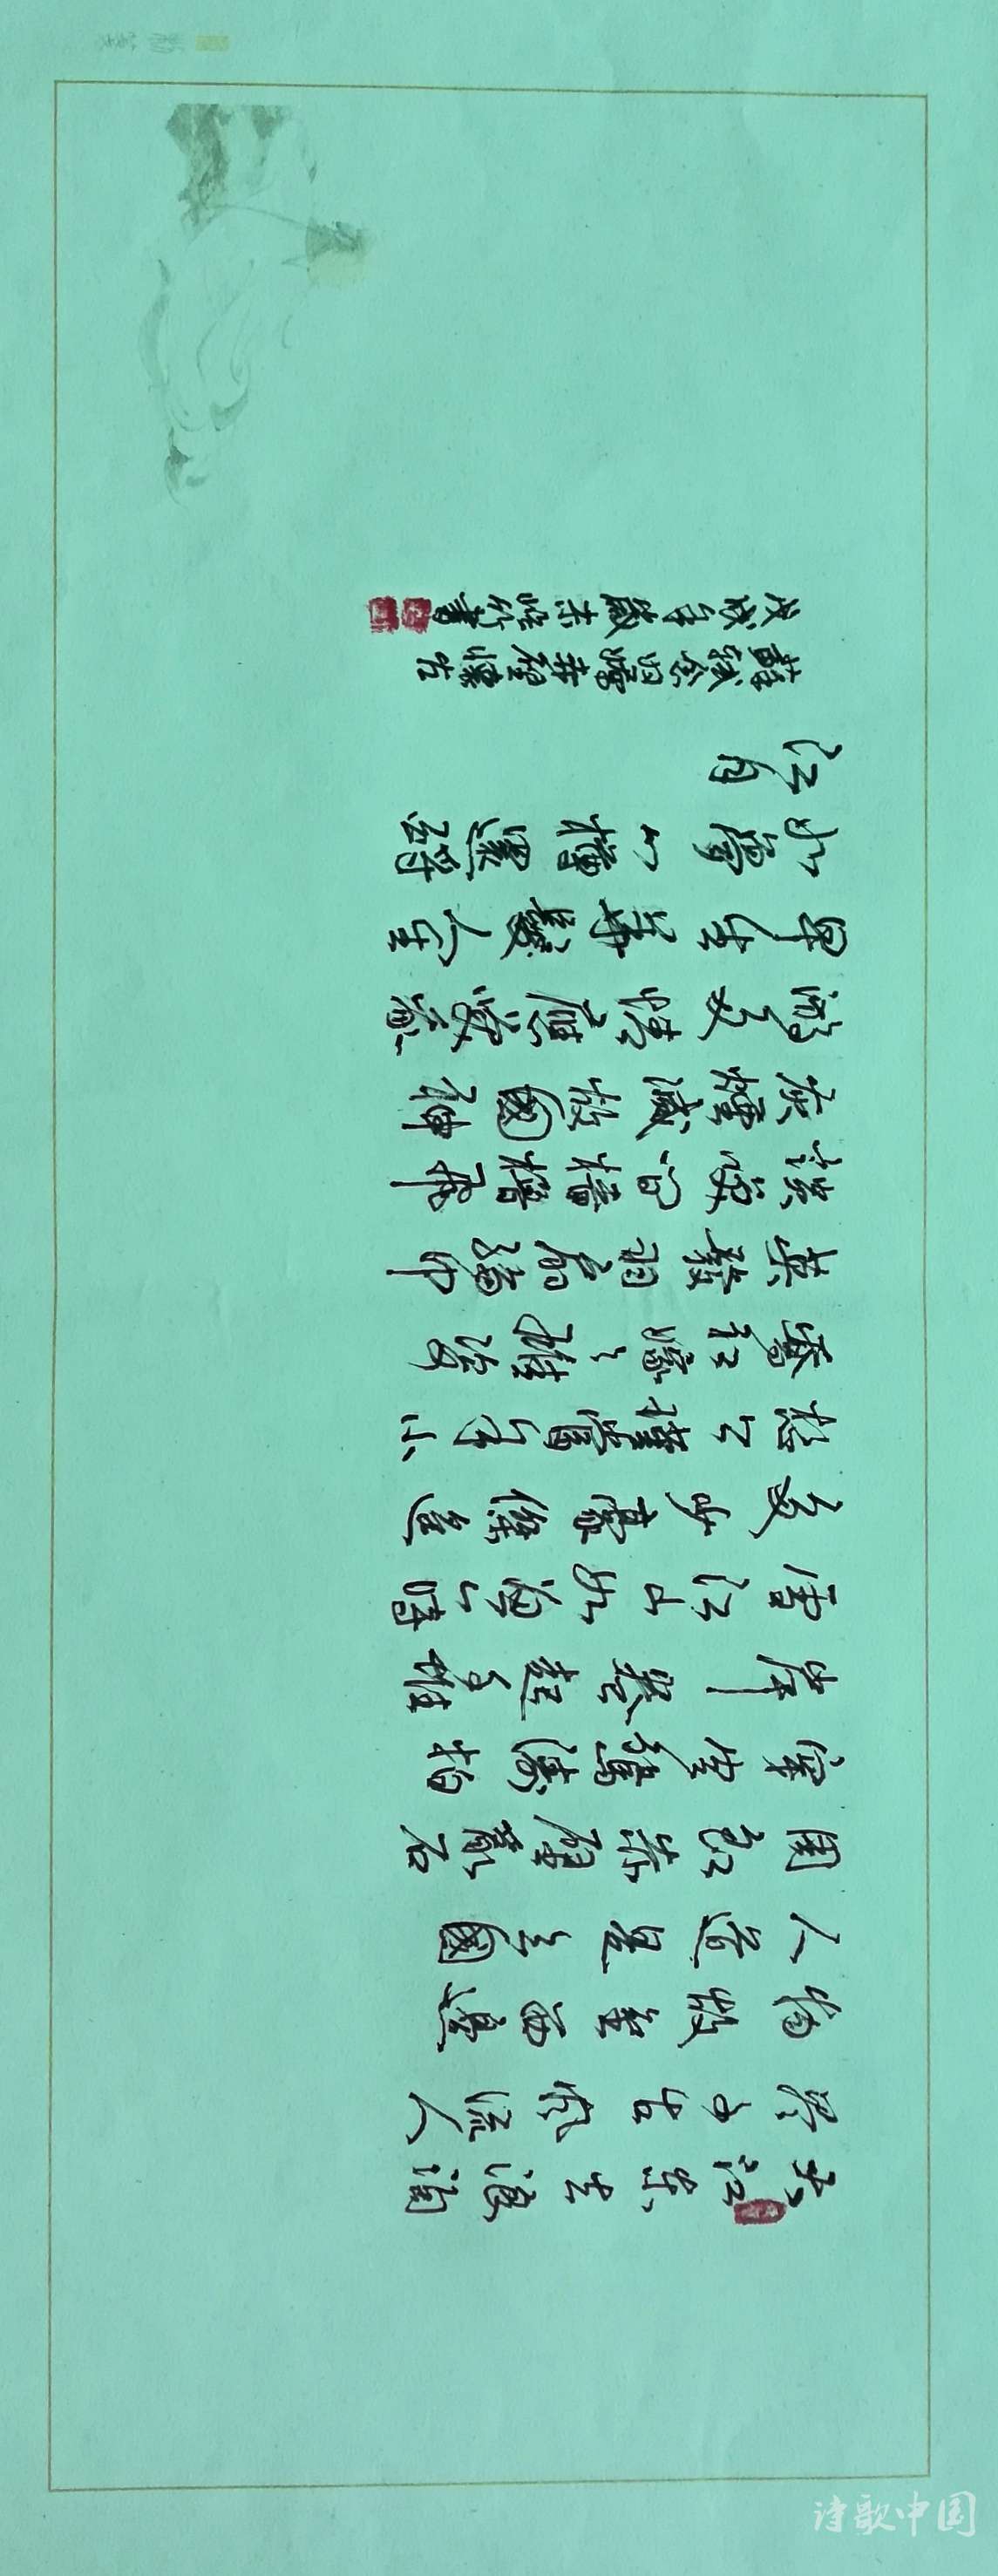 大江東去浪淘
尽千古風流人
物故壘西邊
人道是三國
周郎赤壁亂石
穿空驚濤拍
岸卷起千堆
雪江山如畫一時
多少豪傑遥
想公瑾當年小
喬初嫁了雄姿
英發羽扇綸巾
談笑间檣櫓飛
灰煙滅故國神
游多情應笑我
早生華髮人生
如夢一樽還酹
江月
蘇軾念奴嬌赤壁懷古
戊戌年歲末行書
诗歌中国